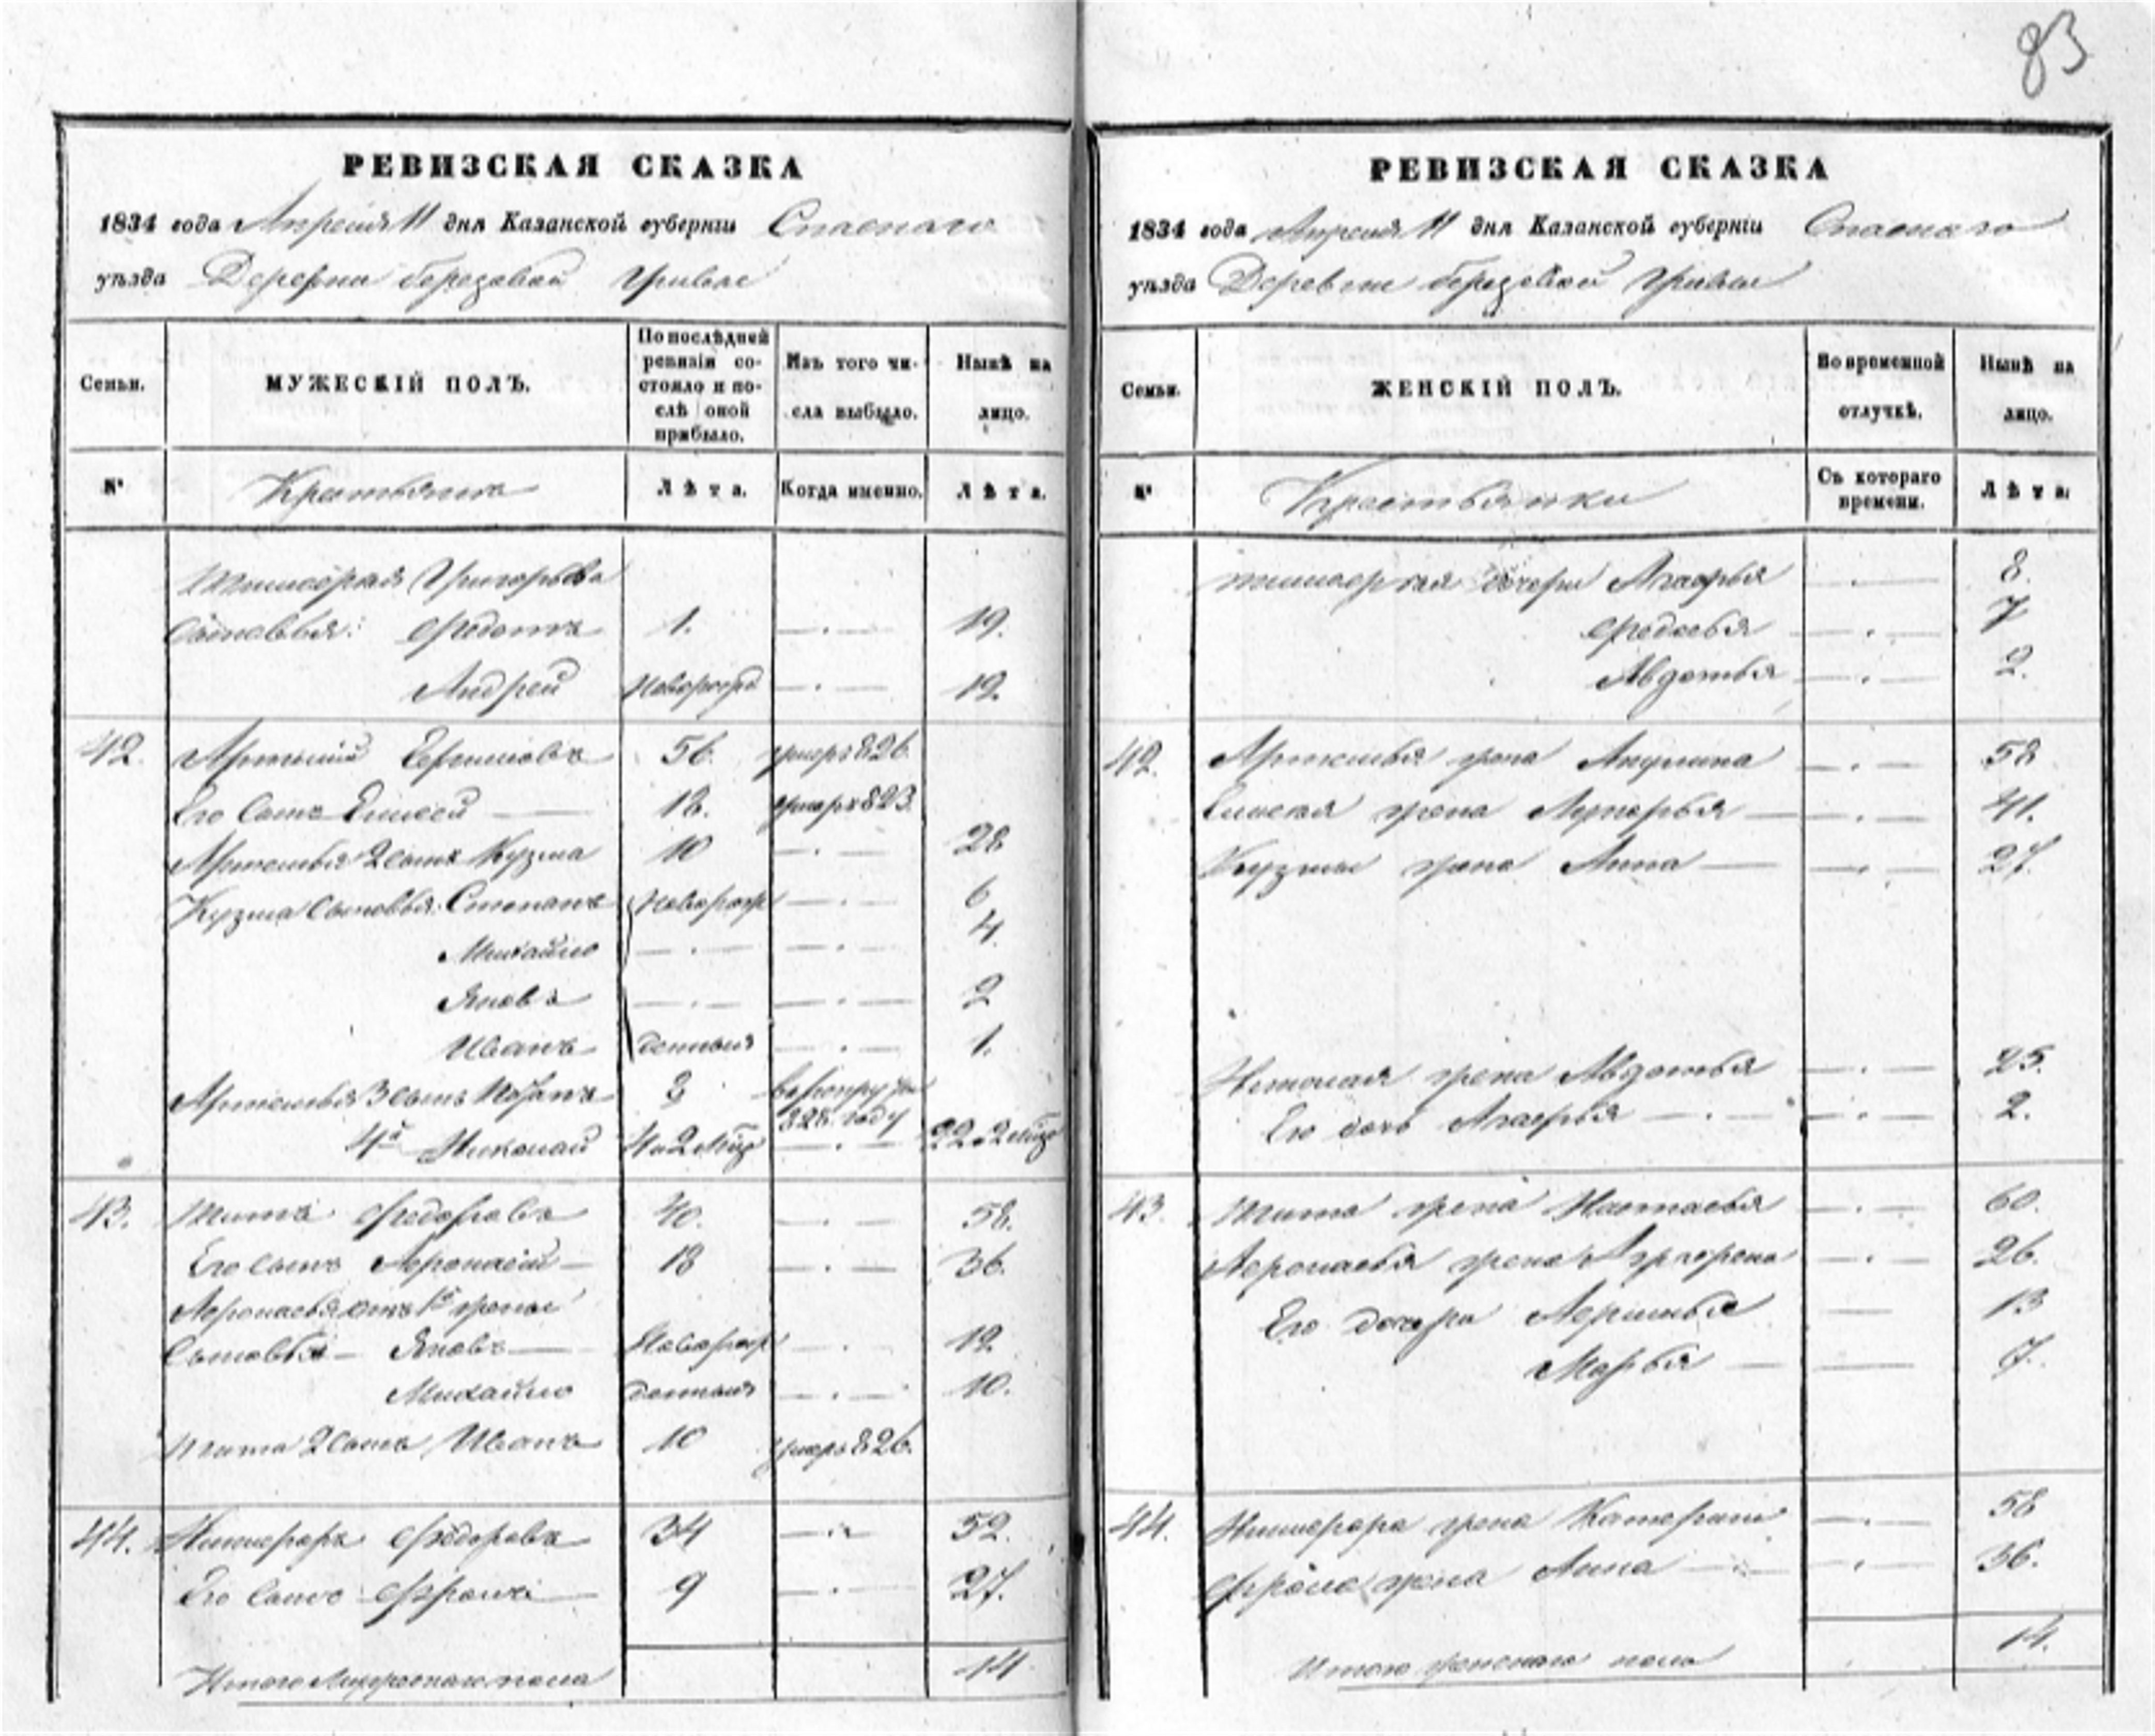 83
РЕВИЗСКАЯ СКАЗКА
1834 года Апреля 11 дня Казанской губернiи Спаскаго
уѣзда Деревни березовой Гривы
Семьи.
МУЖЕСКIЙ ПОЛЪ.
По послѣдней ревизiи состояло и послѣ оной прибыло.
Изъ того числа выбыло.
Нынѣ на лицо.
№
Крестьяне
Лѣта.
Когда именно.
Лѣта.
Григорьева
Сыновья: Федотъ 1. 19.
Андрей Новорожд 12.
42. Артемiй Ефимовъ 56. умеръ 826.
Его сынъ Елисей 18. умеръ 823.
Артемья 2 сынъ Кузма 10 28
Кузма сыновья: Степанъ Новорож 6
Михайло 4.
Яковъ 2
Иванъ денныя 1.
Артемья 3 сынъ 8 в рекруты
828. году
4й Николай 4 и 2 мѣс 22 и 2 мѣс
43. Титъ Федоровъ 40. 58.
Его сынъ Афонасiй 18 36.
Афонасья отъ 1й жены
Сыновья Яковъ Новорож 12
Михайло денныя 10.
Тита 2 сынъ Иванъ 10 умеръ 826.
44. Никифоръ Федоровъ 34 52.
Его сынъ Фролъ 9 27.
Итого мужескаго пола 14
РЕВИЗСКАЯ СКАЗКА
1834 года Апреля 11 дня Казанской губернiи Спаскаго
уѣзда Деревни березовой Гривы
Семьи.
ЖЕНСКIЙ ПОЛЪ.
Во временной отлучкѣ.
Нынѣ на лицо.
№
Крестьянки
Съ котораго времени.
Лѣта.
дочери Агафья 8.
Федосья 7
Авдотья 2.
42. Артемья жена Акулина 58
Елисея жена Лукерья 41.
Кузмы жена Анна 27.
Николая жена Авдотья 25.
Его дочь Агафья 2.
43. Тита жена Настасья 60.
Афонасья жена Аграфена 26.
Его дочери Афимья 13
Марья 7.
44. Никифора жена Катерина 58
Фрола жена Анна 36.
Итого женскаго пола 14.